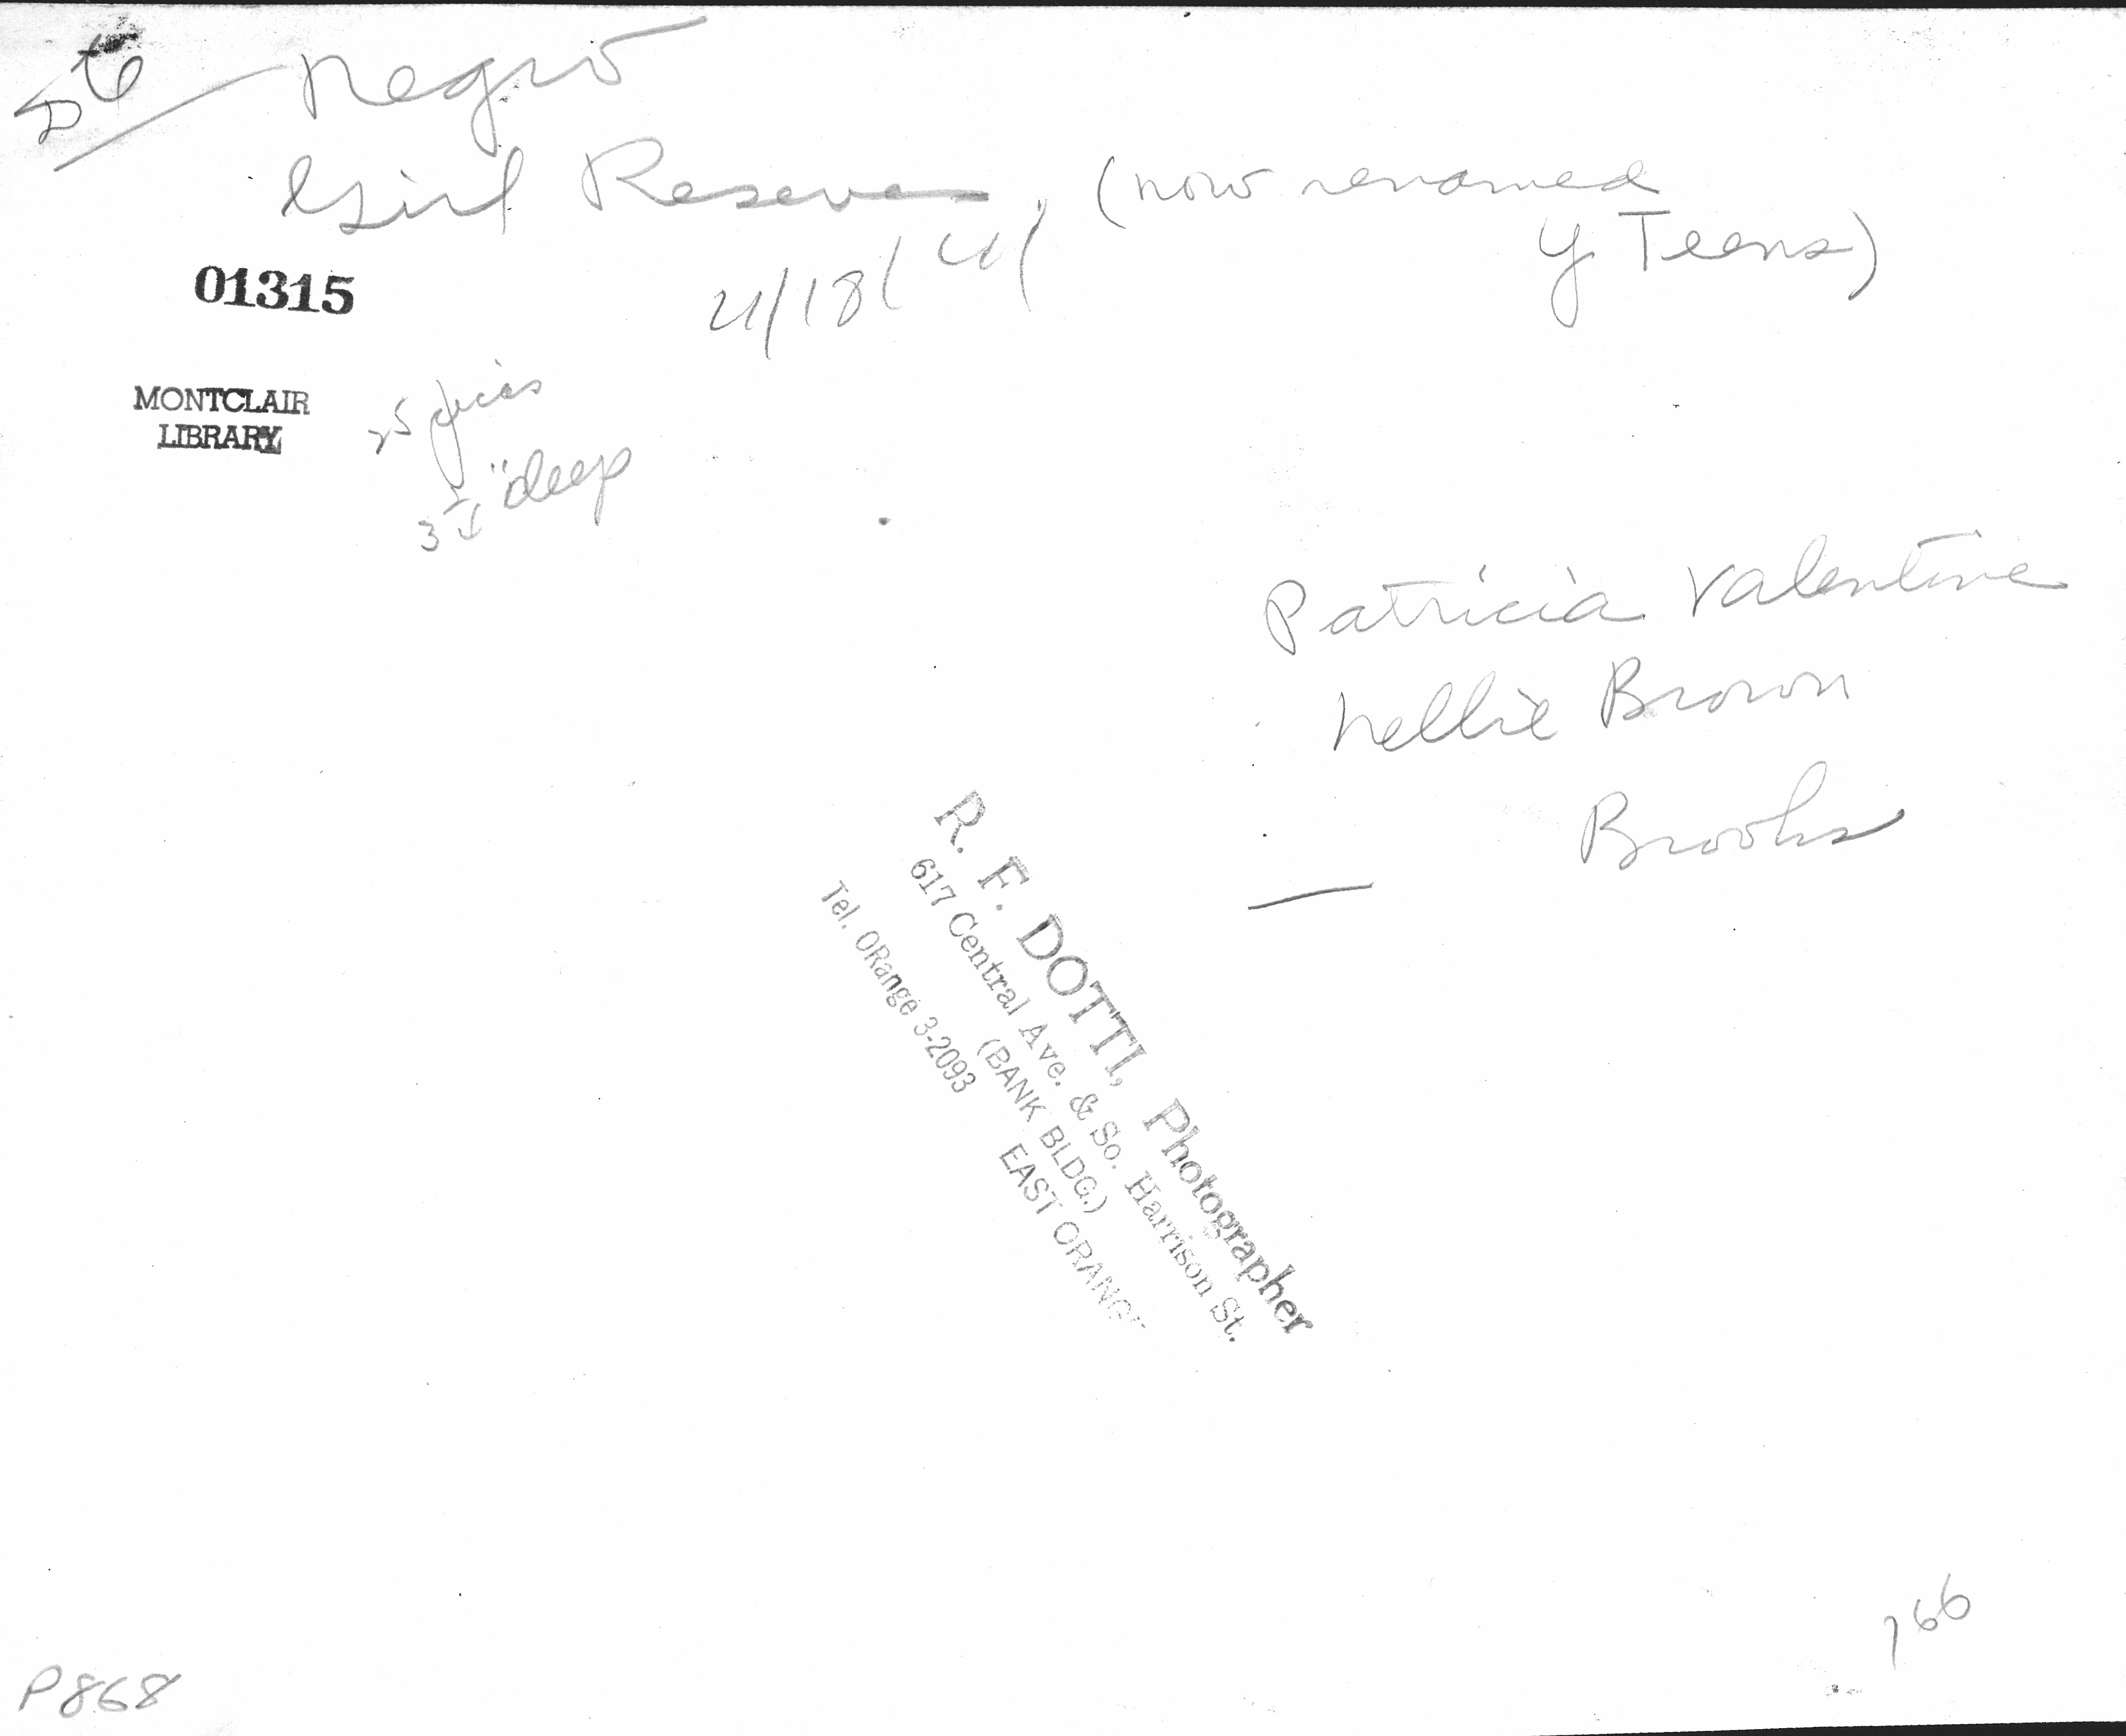 Negro
Girl Reserve, (now renamed
Y Teens)
4/18/41
01315
MONTCLAIR
LIBRARY
25 picas
3 " deep
Patricia Valentine
Nellie Brown
Brooks
R. F. DOTTI, Photographer
617 Central Ave. & So. Harrison St.
(BANK BLDG.)
Tel. ORange 3-2093 EAST ORANGE
166
P868